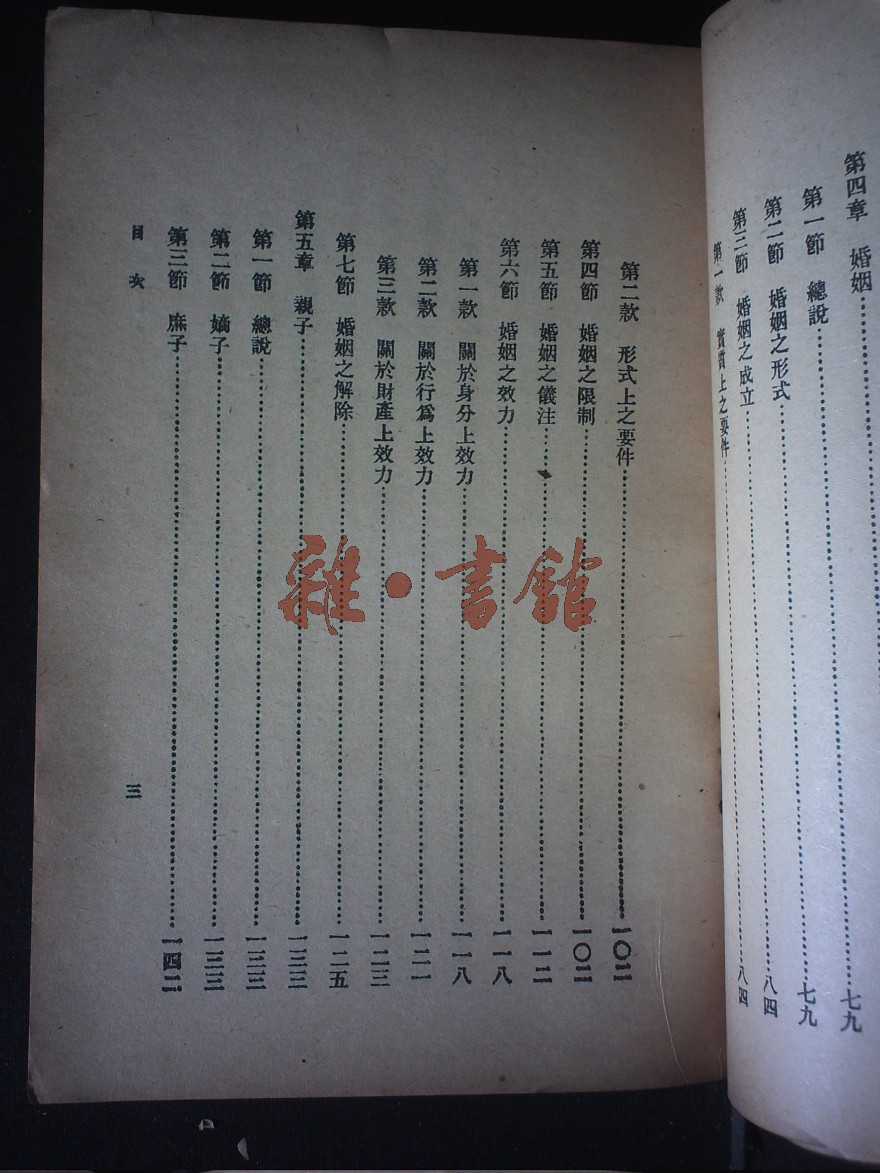 第四章 婚姻……七九
第一節 總說……七九
第二節 婚姻之形式……八四
第三節 婚姻之成立……八四
第一款 實質上之要件……
第二款 形式上之要件……一〇二
第四節 婚姻之限制……一〇二
第五節 婚姻之儀注……一一二
第六節 婚姻之效力……一一八
第一款 關於身分上效力……一一八
第二款 關於行爲上效力……一二一
第三款 關於財產上效力……一二三
第七節 婚姻之解除……一二五
第五章 親子……一三三
第一節 總說……一三三
第二節 嫡子……一三三
第三節 庶子……一四二
目次
三
雜·書館